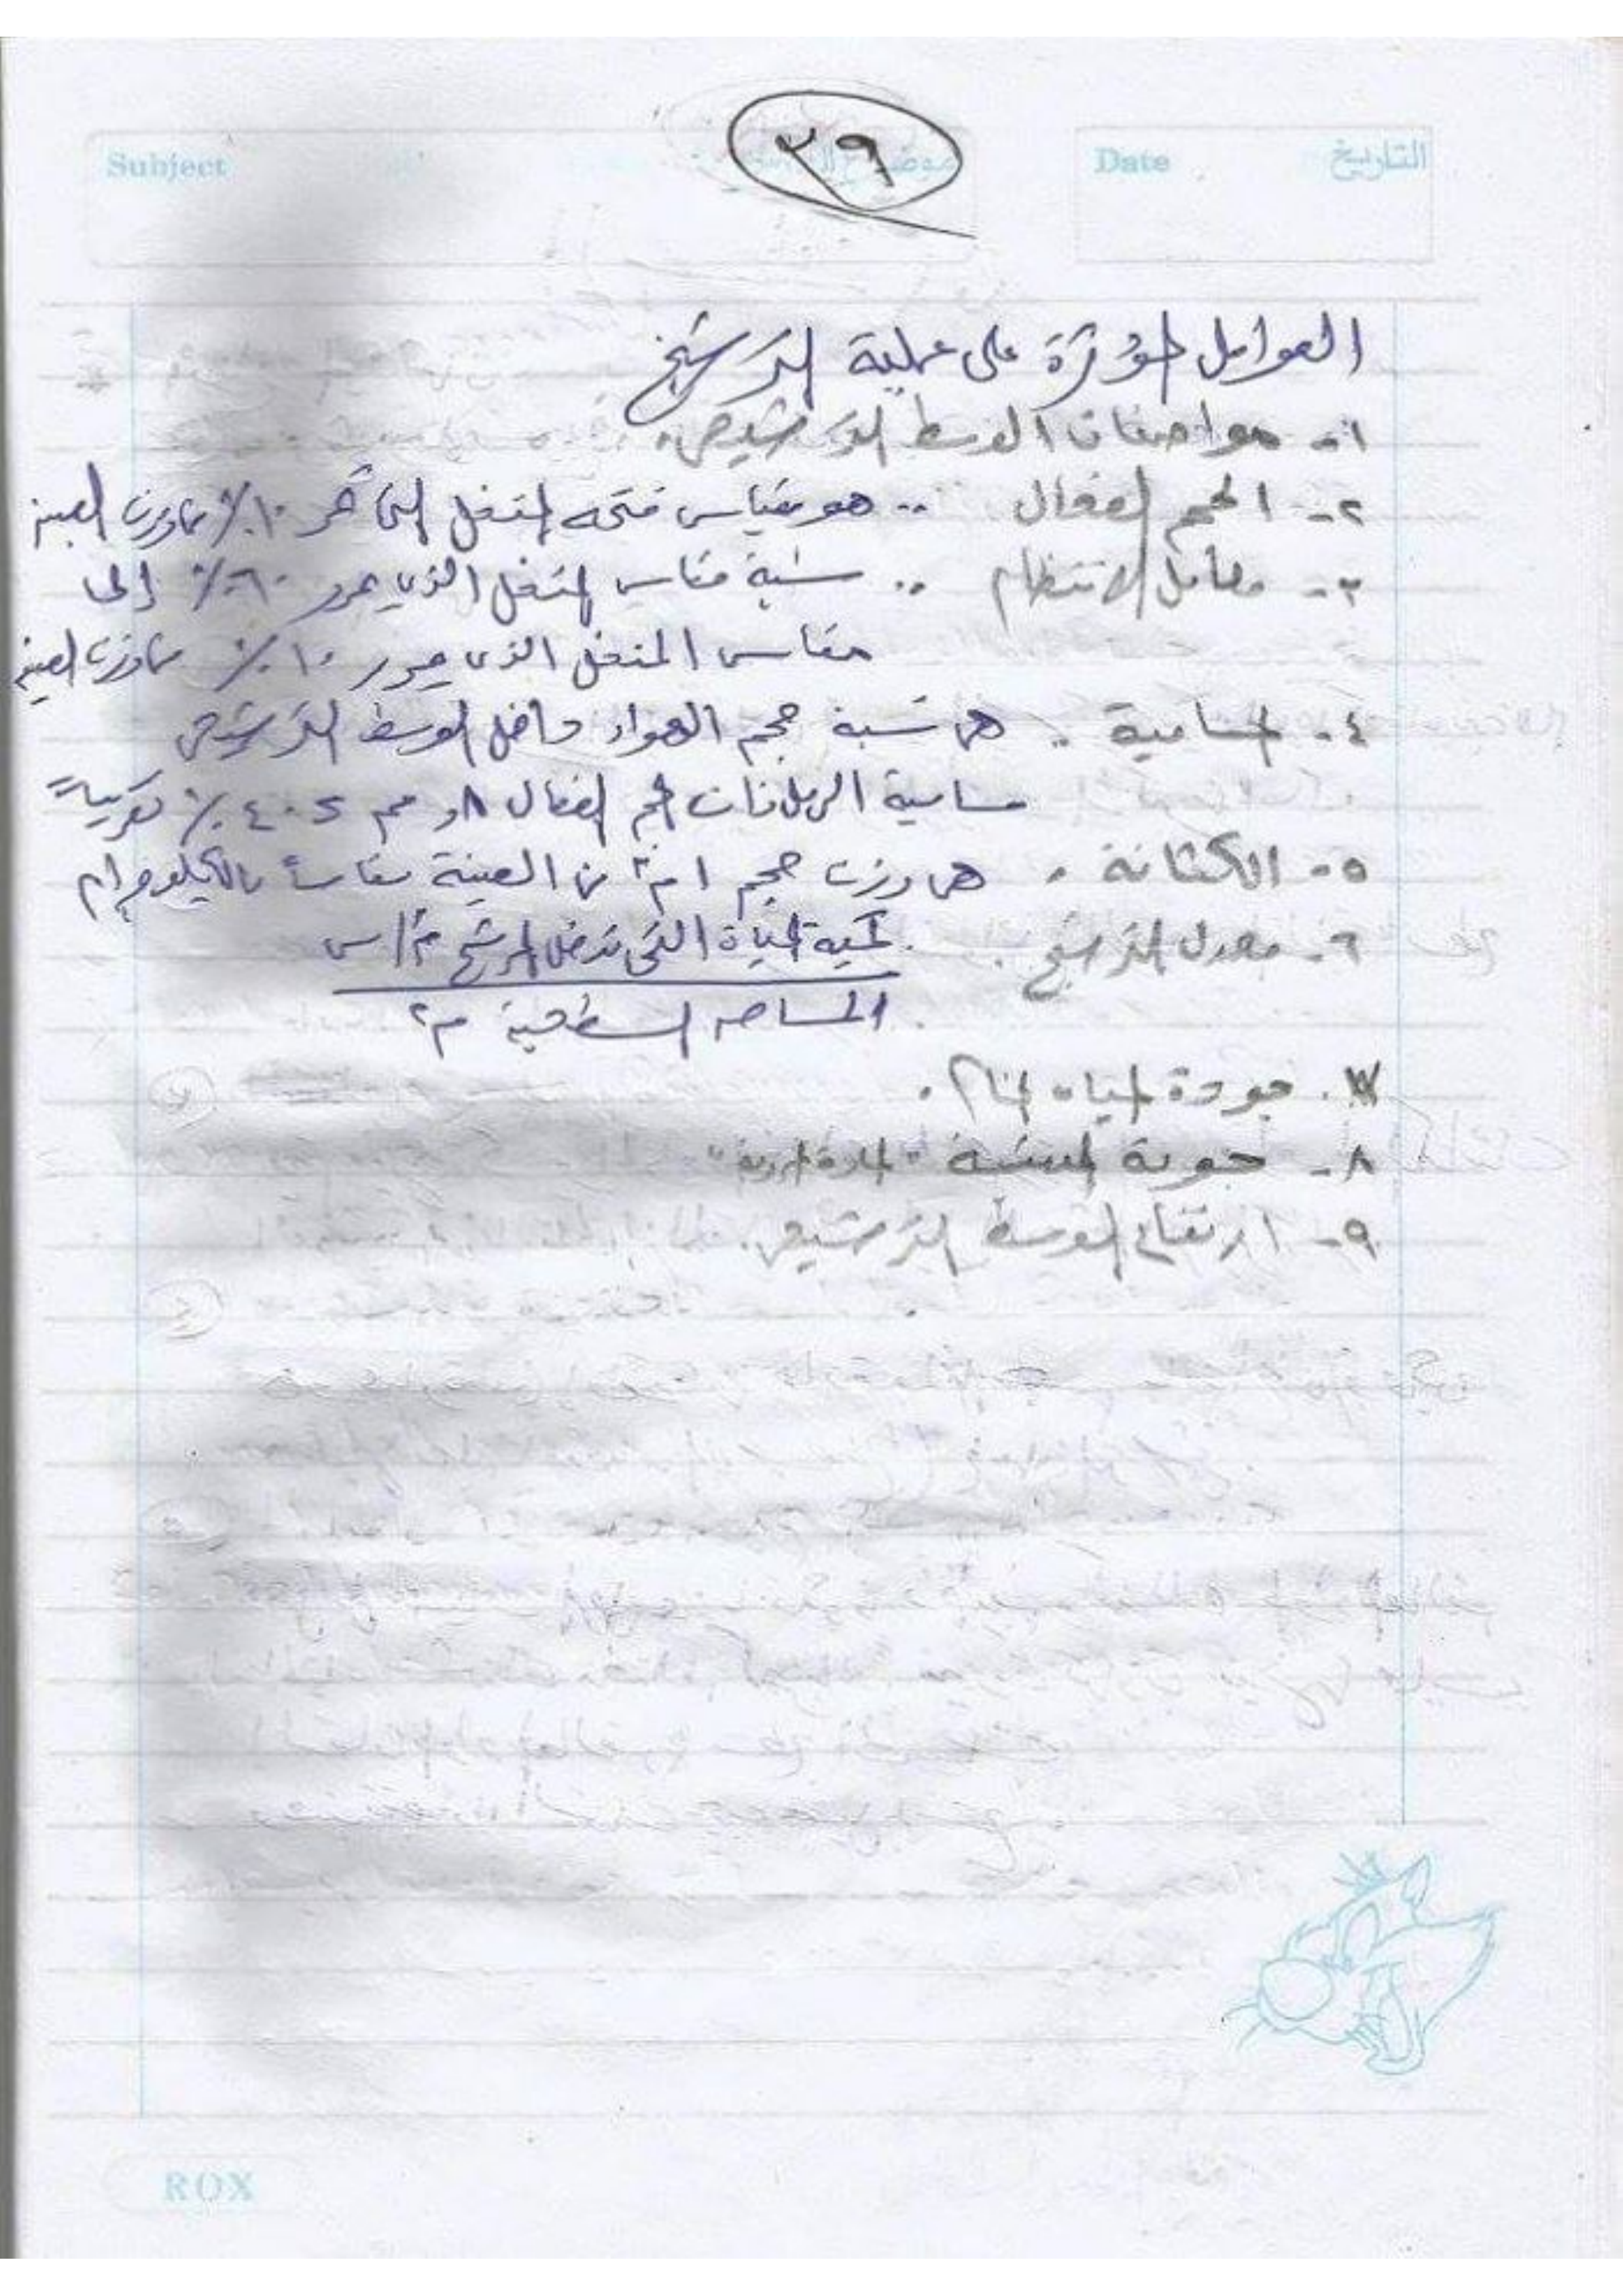 Subject
٣٩
Date التاريخ
العوامل المؤثرة على عملية الترشيح
١- مواصفات الوسط الترشيحى.
٢- الحجم الفعال .. هو مقياس فتحه المنخل التى تمرر ١٠٪ من وزن العينه
٣- معامل الانتظام .. نسبة مقاس المنخل الذى يمرر ٦٠٪ إلى
مقاس المنخل الذى يمرر ١٠٪ من وزن العينه
٤- المسامية .. هى نسبة حجم الهواء داخل الوسط الترشيحى
مسامية الرمل ذات الحجم الفعال ٨, مم ٤٠٪ تقريباً
٥- الكثافة . هى وزن حجم ١م٣ من العينة مقاساً بالكيلوجرام
٦- معدل الترشيح . كمية المياة التى تدخل المرشح م٣/س
المساحه السطحية م٢
٧. جودة المياه الخام.
٨- جودة المشبة "المادة المروبة"
٩- ارتفاع الوسط الترشيحى.
ROX